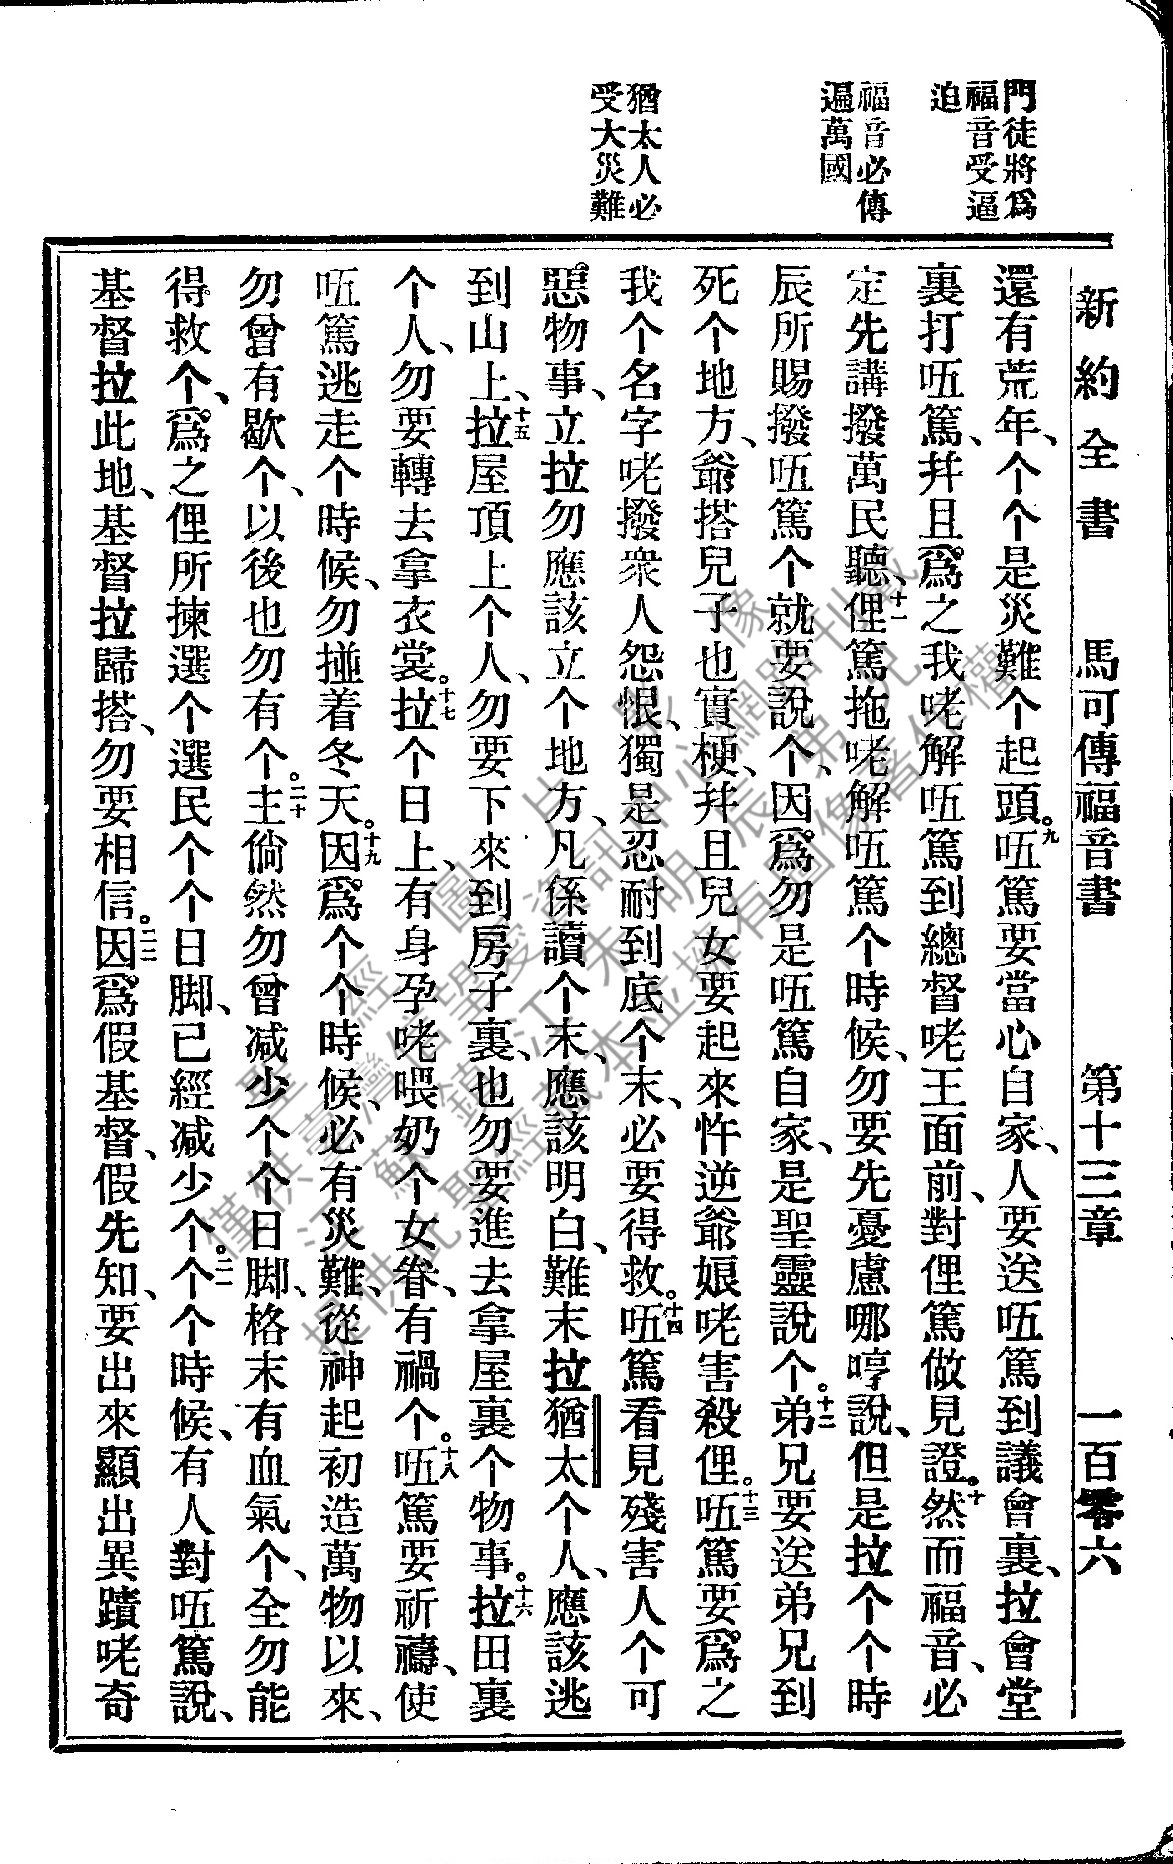 新約全書 馬可傳福音書 第十三章 一百零六
門徒將爲
福音受逼
迫
福音必傳
遍萬國
猶太人必
受大災難
還有荒年、个个是災難个起頭。九㕶篤要當心自家、人要送㕶篤到議會裏、拉會堂
裏打㕶篤、幷且爲之我咾解㕶篤到總督咾王面前、對俚篤做見證。十然而福音、必
定先講撥萬民聽、十一俚篤拖咾解㕶篤个時候、勿要先憂慮哪哼說、但是拉个个時
辰所賜撥㕶篤个就要說个、因爲勿是㕶篤自家、是聖靈說个。十二弟兄要送弟兄到
死个地方、爺搭兒子也實梗、幷且兒女要起來忤逆爺娘咾害殺俚。十三㕶篤要爲之
我个名字咾撥衆人怨恨、獨是忍耐到底个末、必要得救。十四㕶篤看見殘害人个可
惡物事、立拉勿應該立个地方、凡係讀个末、應該明白、難末拉猶太个人、應該逃
到山上、十五拉屋頂上个人、勿要下來到房子裏、也勿要進去拿屋裏个物事。十六拉田裏
个人、勿要轉去拿衣裳。十七拉个日上、有身孕咾喂奶个女眷、有禍个。十八㕶篤要祈禱、使
㕶篤逃走个時候、勿掽着冬天。十九因爲个个時候、必有災難、從神起初造萬物以來、
勿曾有歇个、以後也勿有个。二十主倘然勿曾減少个个日脚、格末有血氣个、全勿能
得救个、爲之俚所揀選个選民个个日脚、已經減少个。二一个个時候、有人對㕶篤說、
基督拉此地、基督拉歸搭、勿要相信。二二因爲假基督、假先知、要出來顯出異蹟咾奇